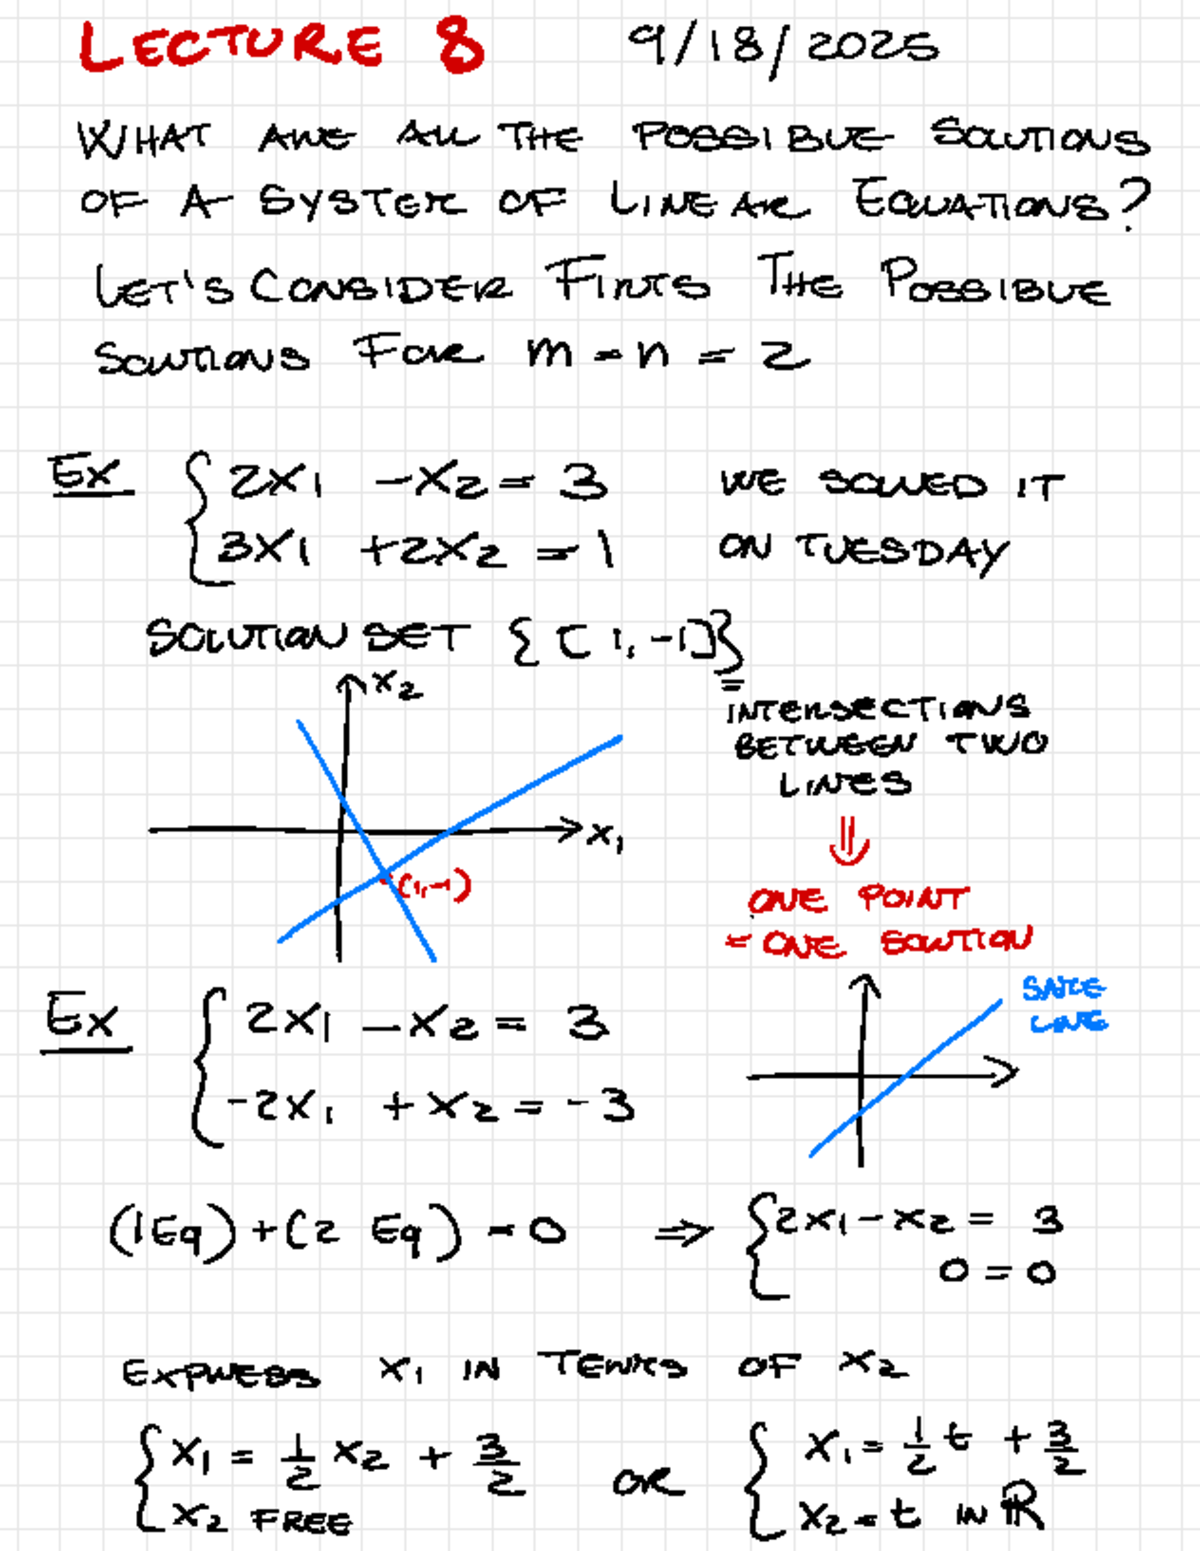 LECTURE 8 9/18/2025
WHAT ARE ALL THE POSSIBLE SOLUTIONS
OF A SYSTEM OF LINEAR EQUATIONS?
LET'S CONSIDER FIRTS THE POSSIBLE
SOLUTIONS FOR m = n = 2
Ex { 2x₁ - x₂ = 3 WE SOLVED IT
3x₁ + 2x₂ = 1 ON TUESDAY
SOLUTION SET {[1, -1]}
x₂
=
INTERSECTIONS
BETWEEN TWO
LINES
x₁
⇓
(1,-1)
ONE POINT
= ONE SOLUTION
Ex { 2x₁ - x₂ = 3
-2x₁ + x₂ = -3
SAME
LINE
(1Eq) + (2 Eq) = 0 ⇒ { 2x₁ - x₂ = 3
0 = 0
EXPRESS x₁ IN TERMS OF x₂
{ x₁ = 1/2 x₂ + 3/2 OR { x₁ = 1/2 t + 3/2
x₂ FREE x₂ = t IN ℝ